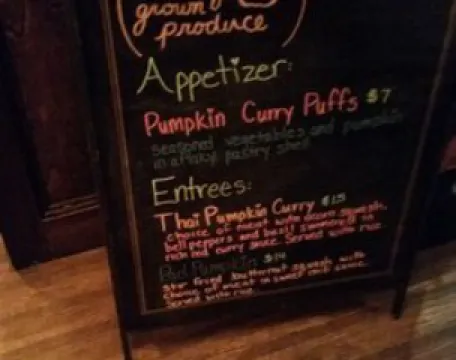 grown
produce
Appetizer:
Pumpkin Curry Puffs $7
seasoned vegetables and pumpkin
in a flaky pastry shell
Entrees:
Thai Pumpkin Curry $15
choice of meat with acorn squash,
bell peppers and basil simmered in
rich red curry sauce. Served with rice.
Pad Pumpkin $14
stir fried butternut squash with
choice of meat in sauce.
Served with rice.